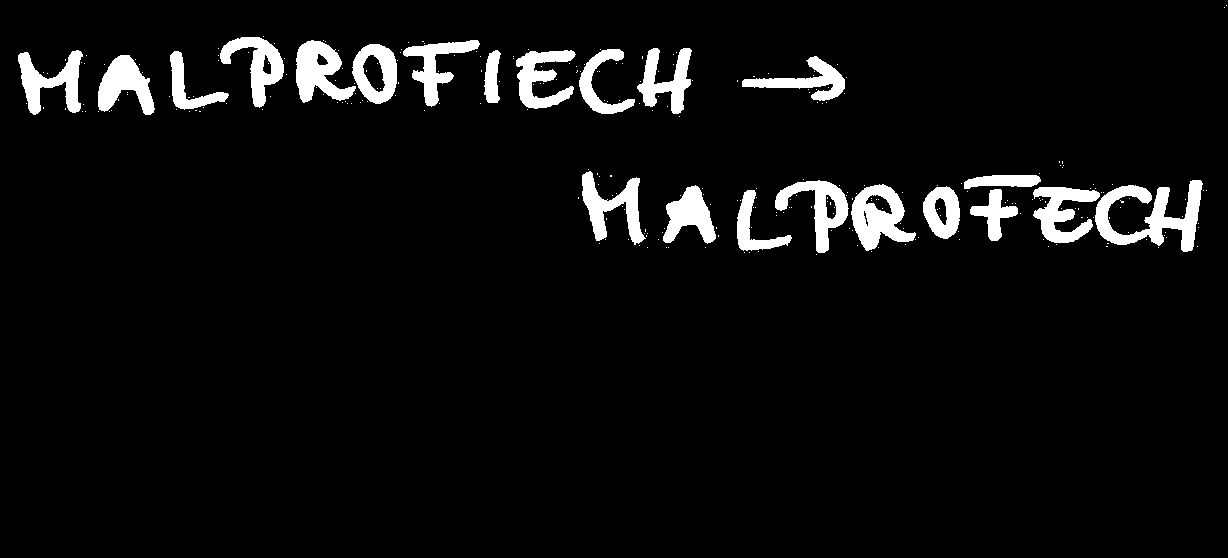 MALPROFIECH →
MALPROFECH